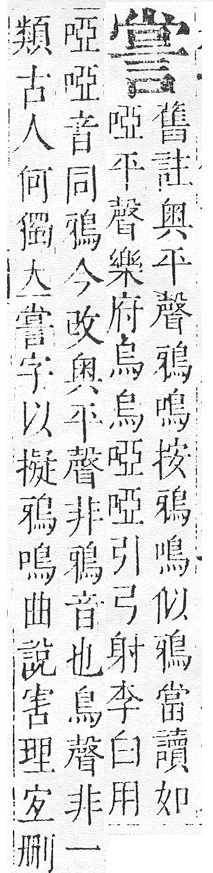 舊註奧平聲鴉鳴按鴉鳴似鴉當讀如
啞平聲樂府烏烏啞啞引弓射李白用
啞啞音同鴉今改奧平聲非鴉音也鳥聲非一
類古人何獨立字以擬鴉鳴曲說害理宜刪